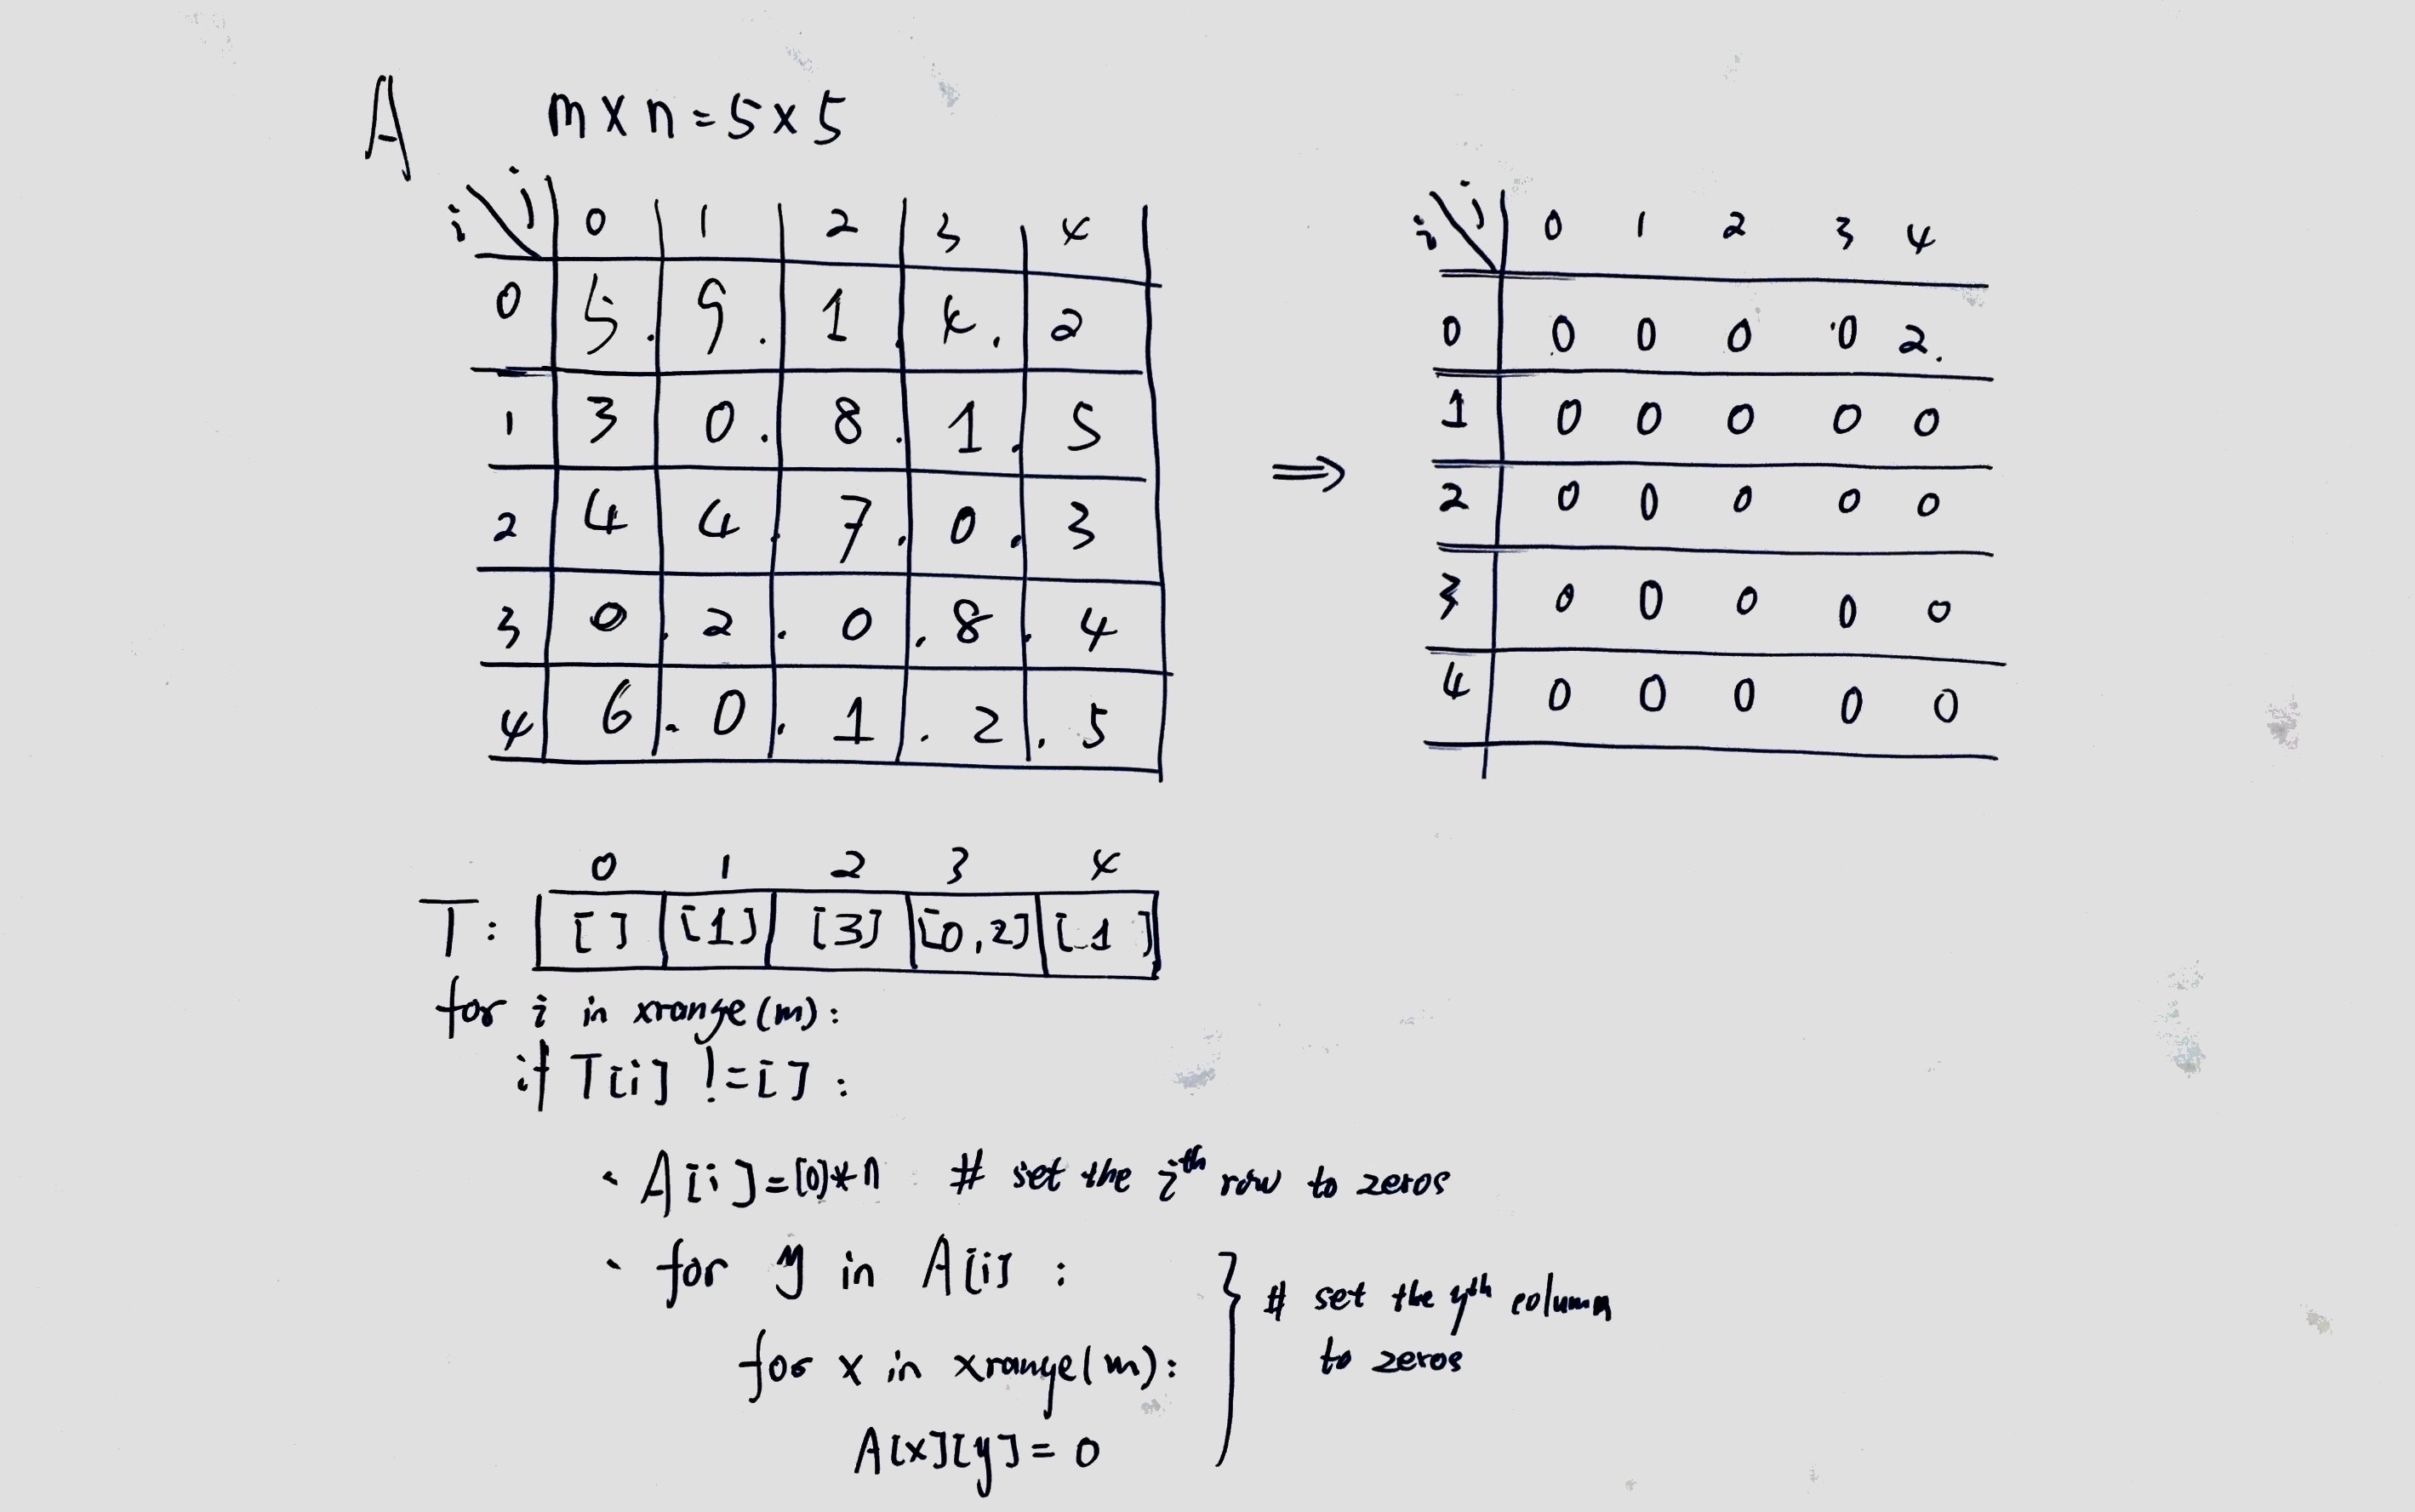 A m x n = 5 x 5
i j 0 1 2 3 4
0 5. 9. 1. 4. 2
1 3 0. 8. 1. 5
2 4 4. 7. 0. 3
3 0. 2. 0. 8. 4
4 6. 0. 1. 2. 5
⇒
i j 0 1 2 3 4
0 0 0 0 0 2.
1 0 0 0 0 0
2 0 0 0 0 0
3 0 0 0 0 0
4 0 0 0 0 0
0 1 2 3 4
T: [] [1] [3] [0,2] [1]
for i in xrange(m):
if T[i] != []:
A[i] = [0]*n # set the ith row to zeros
for y in A[i]:
for x in xrange(m):
A[x][y] = 0
# set the yth column
to zeros